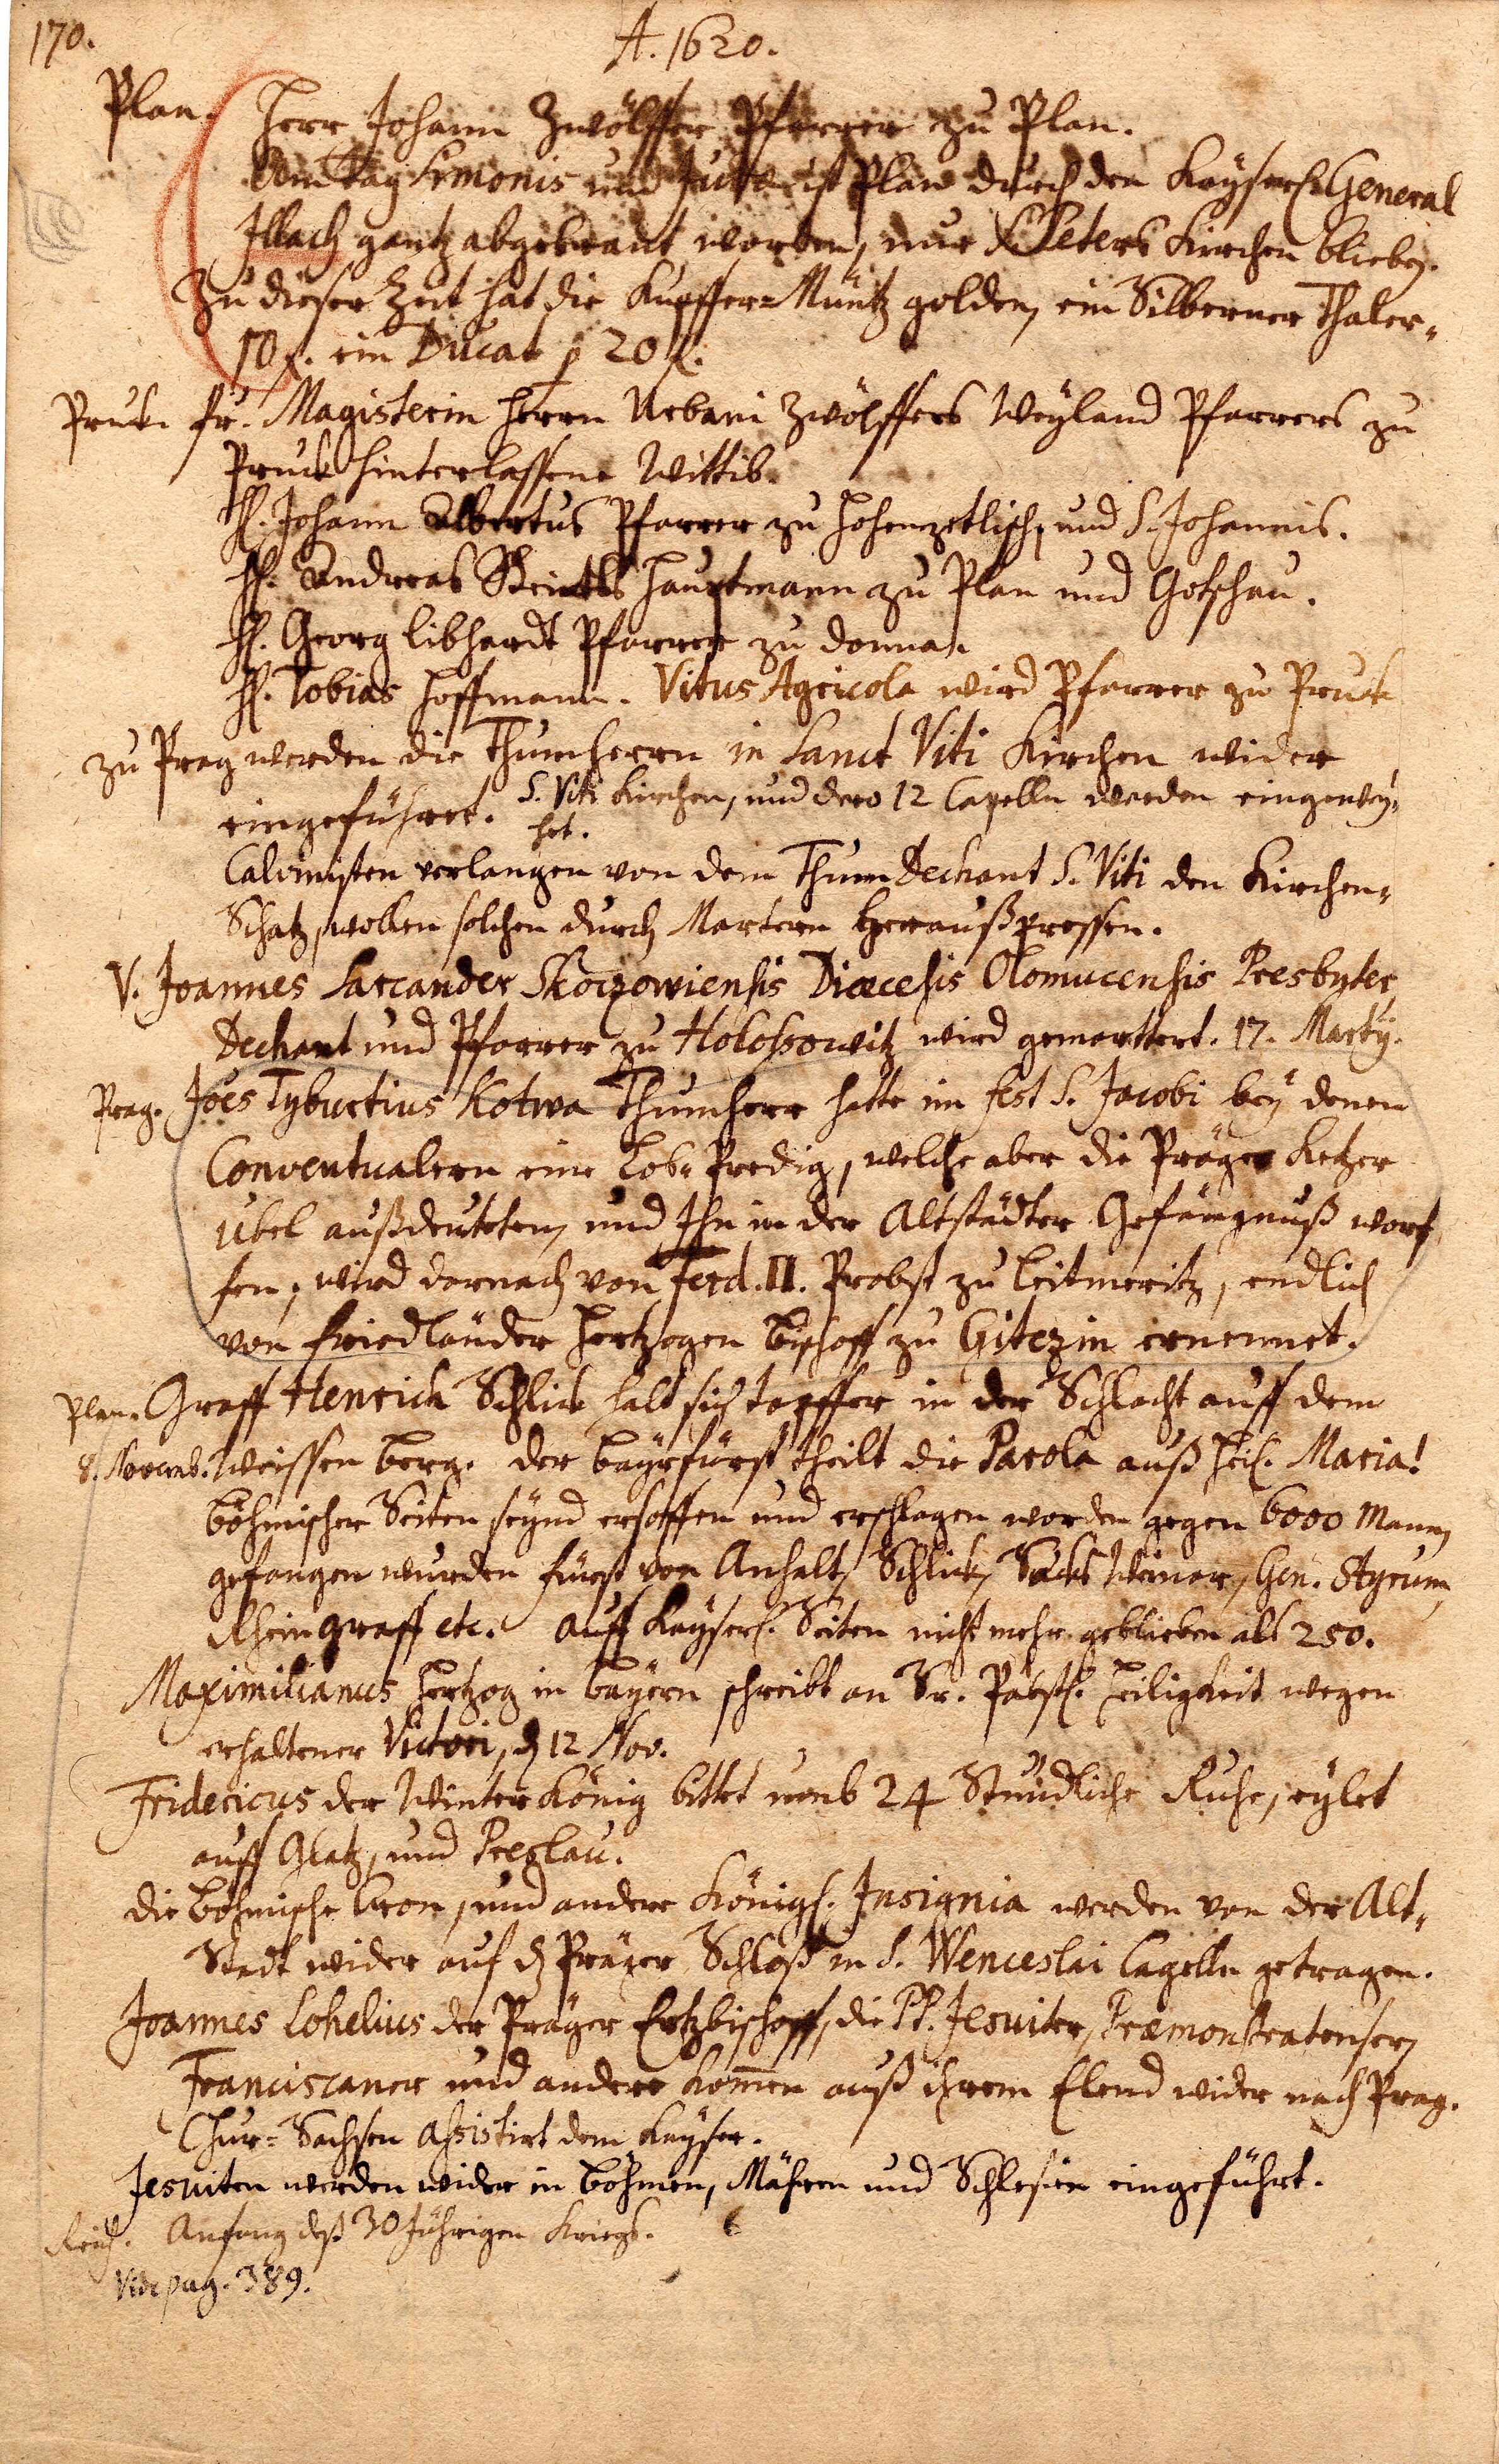 170.
A. 1620.
Plan. Herr Johann Zwölffer Pfarrer zu Plan.
Am Tag Simonis und Judae ist Plan durch den Kayserl. General
Illach gantz abgebrant worden, nur S. Peters Kirchen blieben.
Zu dieser Zeit hat die Kupffer-Müntz golden, ein Silberner Thaler-
10 f. ein Ducat p 20 f.
Pruk. Fr. Magisterin Herrn Urbani Zwölffers Weyland Pfarrers zu
Pruck hinterlassene Wittib.
H. Johann Albertus Pfarrer zu Hohenzetlisch, und S. Johannis.
H. Andreas Hauptmann zu Plan und Gotschau.
H. Georg Libhardt Pfarrer zu Donna.
H. Tobias Hoffmann. Vitus Agricola wird Pfarrer zu Pruck
Zu Prag werden die Thumherrn in Sanct Viti Kirchen wider
eingeführt. S. Viti Kirchen, und dero 12 Capelln werden eingewey-
het.
Calvinisten verlangen von dem Thum Dechant S. Viti den Kirchen-
Schatz, wollen solchen durch Martern herauß pressen.
V. Joannes Sarcander Skoczowiensis Diœcesis Olomucensis Presbyter,
Dechant und Pfarrer zu Holossowitz wird gemarttert. 17. Martij.
Prag. Joes Tyburtius Kotwa Thumherr hatte im fest S. Jacobi bey denen
Conventualern eine Lob-Predig, welche aber die Präger Ketzer
übel außdeuteten, und Ihn in der Altstädter Gefängnuß worf-
fen, wird darnach von Ferd. II. Probst zu Leitmeritz, endlich
von Friedländer Hertzogen Bischoff zu Gitczin ernennet.
Plan. Graff Henrich Schlick halt sich tapffer in der Schlacht auff dem
8. Novemb. Weissen Berg. Der Bayrfürst theilt die Parola auß Heil. Maria!
Böhmischer Seiten seynd ersoffen und erschlagen worden gegen 6000 Mann,
gefangen wurden Fürst von Anhalt, Schlick, Sachs Weimar, Gen. Styrum,
Rheingraff etc. Auff Kayserl. Seiten nicht mehr geblieben als 250.
Maximilianus Hertzog in Bayern schreibt an Sr. Päbstl. Heiligkeit wegen
erhaltener Victori, d 12 Nov.
Fridericus der Winter König bittet umb 24 Stündliche Ruhe, eylet
auff Glatz, und Preslau.
Die Böhmische Cron, und andere Königl. Insignia werden von der Alt-
Stadt wider auf d Präger Schloß in S. Wenceslai Capelln getragen.
Joannes Lohelius der Präger Ertzbischoff, die PP. Jesuiter, Præmonstratenser,
Franciscaner und andere kom̄en auß ihrem Elend wider nach Prag.
Chur-Sachsen assistirt dem Kayser.
Jesuiten werden wider in Böhmen, Mähren und Schlesien eingeführt.
Reich. Anfang deß 30 Jährigen Kriegs.
Vide pag. 389.